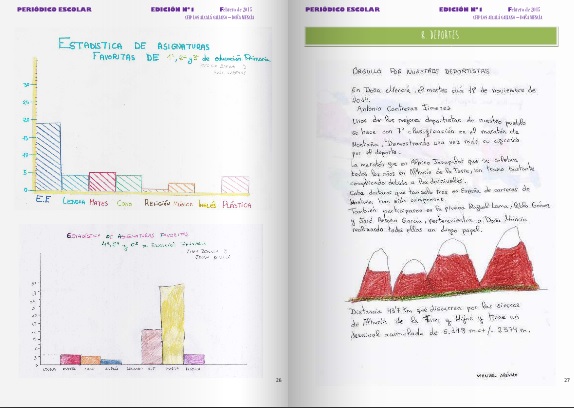 PERIÓDICO ESCOLAR EDICIÓN Nº1 Febrero de 2015
CEIP LUIS ALCALÁ GALIANO - DOÑA MENCÍA
ESTADÍSTICA DE ASIGNATURAS
FAVORITAS DE 1º, 2º y 3º de educación Primaria
30
25
20
15
10
5
0
E.F LENGUA MATES CONO RELIGIÓN MÚSICA INGLÉS PLÁSTICA
ESTADÍSTICA DE ASIGNATURAS FAVORITAS
4º, 5º y 6º de Educación Primaria
26
PERIÓDICO ESCOLAR EDICIÓN Nº1 Febrero de 2015
CEIP LUIS ALCALÁ GALIANO - DOÑA MENCÍA
8. DEPORTES
ORGULLO POR NUESTROS DEPORTISTAS
En Doña Mencía, el martes día 18 de noviembre de
2014.
Antonio Contreras Jimenez
Unos de los mejores deportistas de nuestro pueblo
se hace con 7ª clasificación en el maratón de
Montaña. Demostrando una vez más su ejercicio
por el deporte.
La maratón que en Alpino Jarapalos que se celebra
todos los años en Alhaurín de la Torre, un tramo bastante
complicado debido a los desniveles.
Cabe destacar que tan solo tres en España de carreras de
Montaña han sido
También participaron en la prueba Miguel Lama, Pablo Gómez
y José Antonio García, pertenecientes a Doña Mencía
realizando todos ellos un digno papel.
Distancia 43'7 Km que discurren por las sierras
de Alhaurín de la Torre, y Mijas y tiene un
desnivel acumulado de
27